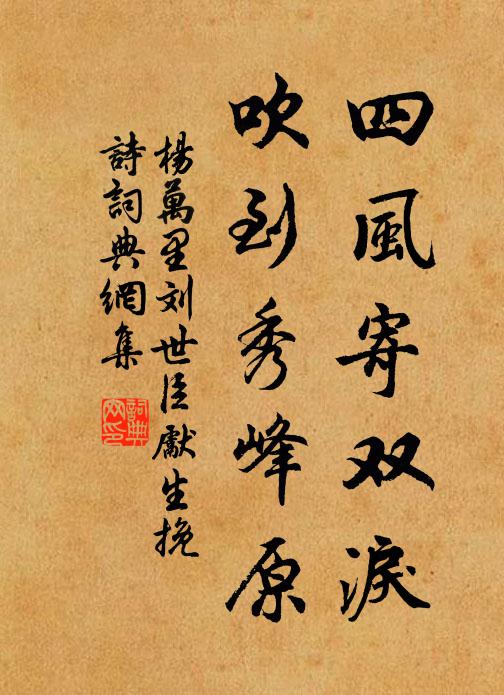 四風寄双淚
吹到秀峰原
楊萬里刘世臣獻生挽
詩詞典網集
詞典網印